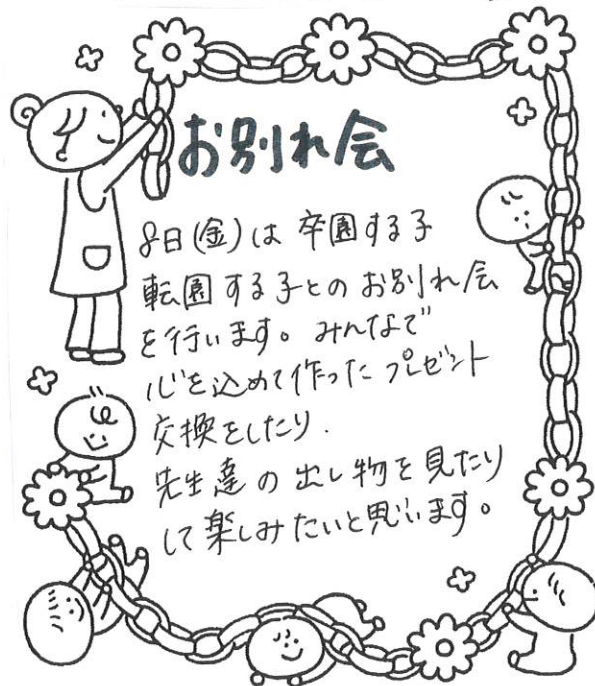 お別れ会
8日(金)は卒園する子
転園する子とのお別れ会
を行います。みんなで
心を込めて作ったプレゼント
交換をしたり.
先生達の出し物を見たり
して楽しみたいと思います。